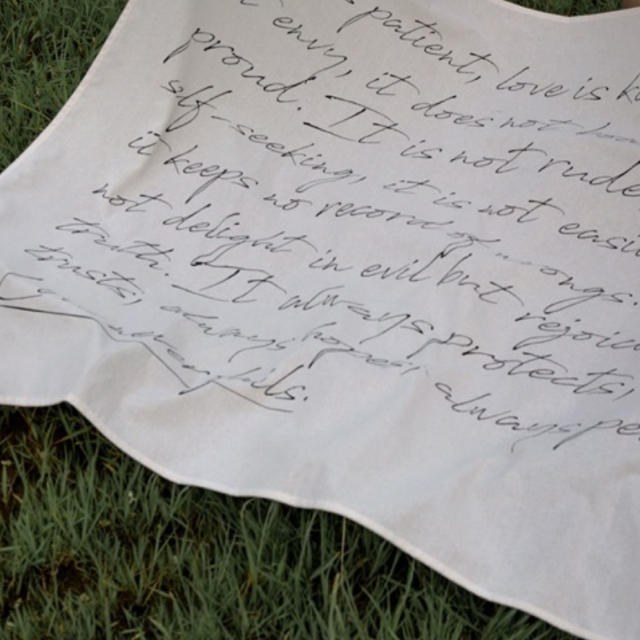 patient, love is k
envy, it does not
proud. It is not rude
self-seeking, it is not easi
it keeps no record of wrongs.
not delight in evil but rejoic
truth. It always protects,
trusts, always always pe